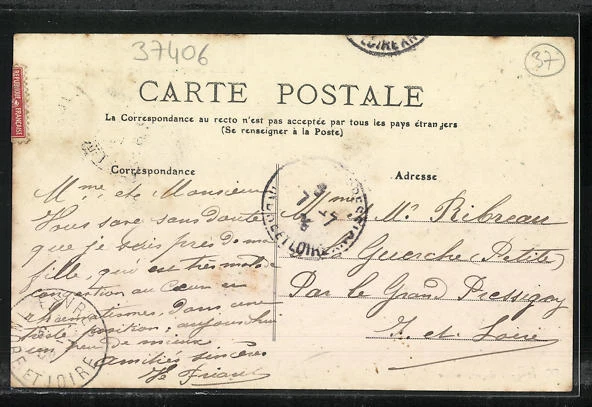 37406
37
LOIRE
REPUBLIQUE FRANÇAISE
CARTE POSTALE
La Correspondance au recto n'est pas acceptée par tous les pays étrangers
(Se renseigner à la Poste)
Correspondance
Adresse
Mme et Monsieur
Vous savez sans doute
que je suis près de ma
fille, qui est très malade
congestion au Coeur et
rhumatismes, dans une
triste position, aujourd'hui
un peu de mieux
amitiés sincères
Mme et Mr Ribreau
Guerche (Petite)
Par le Grand Pressigny
I. et Loire
INDRE ET LOIRE
ET LOIRE